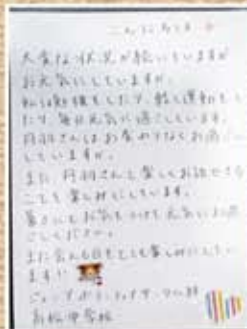 こんにちは
大変な状況が続いていますが
お元気にしていますか。
私は勉強をしたり、軽く運動をし
たり、毎日元気に過ごしています。
丹羽さんはお変わりなくお過ごし
していますか。
また 丹羽さんと楽しくお話できる
ことを楽しみにしています。
皆さんもお気をつけて元気にお過
ごしください。
また会える日をとても楽しみにしてい
ます!!
高松中学校